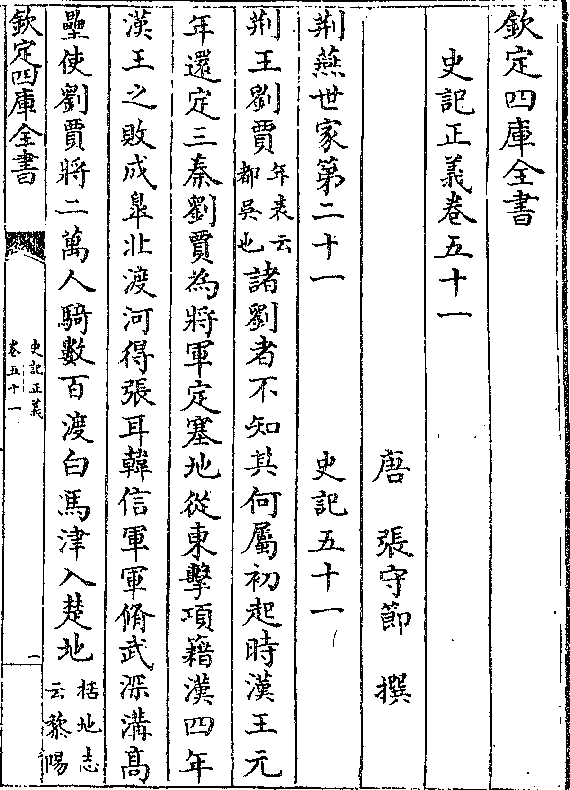 欽定四庫全書
史記正義卷五十一
唐 張守節 撰
荆燕世家第二十一 史記五十一
荆王劉賈年表云都吳也諸劉者不知其何屬初起時漢王元
年還定三秦劉賈為將軍定塞地從東擊項籍漢四年
漢王之敗成臯北渡河得張耳韓信軍軍脩武深溝髙
壘使劉賈將二萬人騎數百渡白馬津入楚地括地志云黎陽
欽定四庫全書
史記正義
卷五十一
一